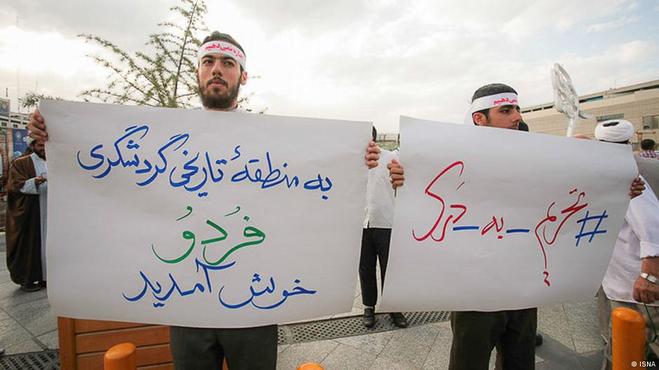 به منطقهٔ تاریخی گردشگری
فُردُو
خوش آمدید
#تحریم_به_دَرک
نمی دهیم
© ISNA